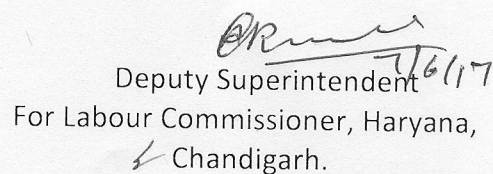 7/6/17
Deputy Superintendent
For Labour Commissioner, Haryana,
Chandigarh.